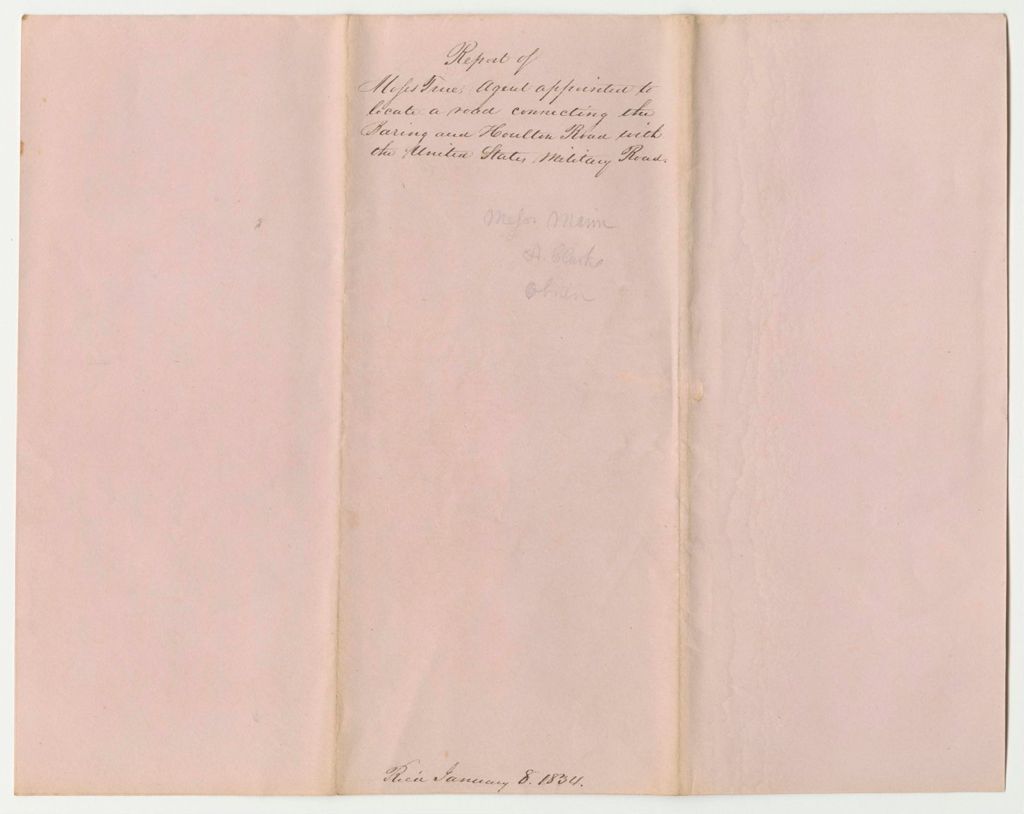 Report of
Moses True, Agent appointed to
locate a road connecting the
Baring and Houlton Road with
the United States Military Road.
Messrs Mann
Clark
Rec'd January 8. 1834.